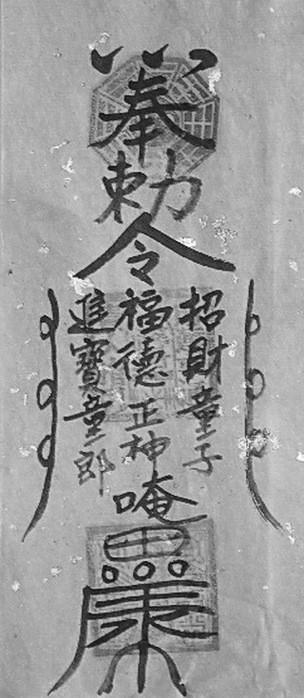 奉
勅
令
招財童子
福德正神
進寶童郎
唵